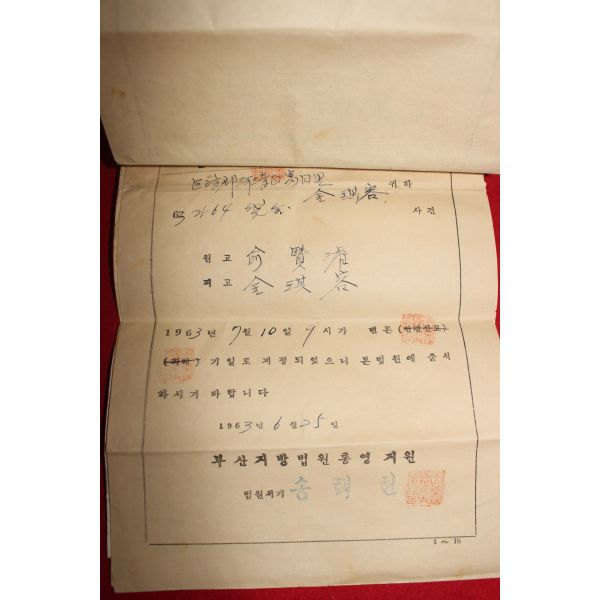 巨濟郡 귀하
金琪容
63 가64 사건
원고 俞賢濬
피고 金琪容
1963년 7월 10일 9시가 변론 (판결선고)
(화해) 기일로 지정되었으니 본법원에 출석
하시기 바랍니다
1963년 6월 25일
부산지방법원통영지원
법원서기 송택헌
1~18